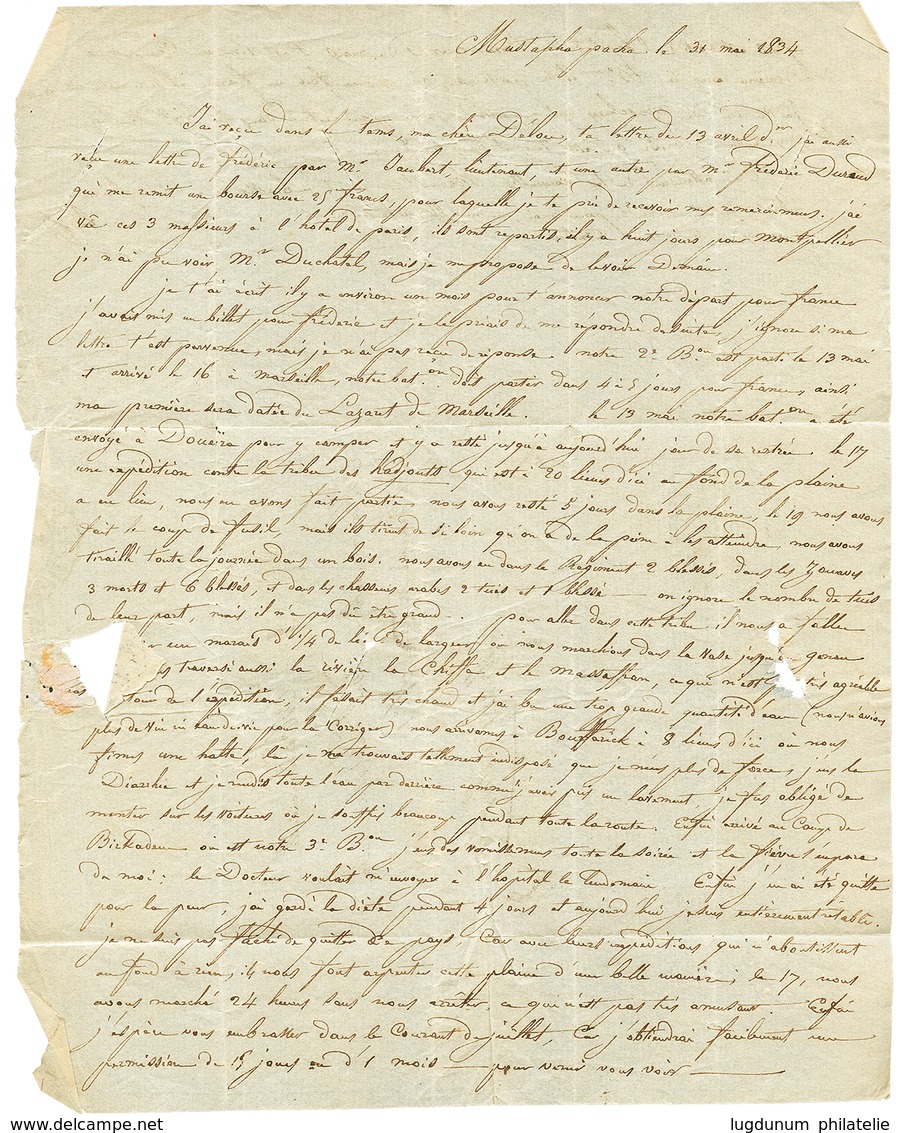 Mustapha pacha le 31 mai 1834
J'ai reçu dans le tems, ma chère Délou, ta lettre du 13 avril d.er j'ai aussi
reçu une lettre de frédéric par Mr Jaubert, lieutenant, et une autre par Mr frédéric Durand
qui me remit un bourse avec 25 francs, pour laquelle je te prie de recevoir mes remerciemens. j'ai
vu ces 3 messieurs à l'hotel de paris, ils sont repartis, il y a huit jours pour montpellier
je n'ai pu voir Mr Duchatel, mais je me propose de le voir Demain.
je t'ai écrit il y a environ un mois pour t'annoncer notre départ pour france
j'avais mis un billet pour frédéric et je le priais de me répondre de suite, j'ignore si ma
lettre t'est parvenue, mais je n'ai pas reçu de réponse. notre 2e B.on est parti le 13 mai
et arrivé le 16 à marseille, notre bat.on doit partir dans 4 à 5 jours pour france, ainsi
ma première sera datée du Lazaret de Marseille. le 13 mai notre bat.on a été
envoyé à Douëira pour y camper et y a resté jusqu'à aujourd'hui jour de sa rentrée. le 17
une expédition contre la tribu des hadjoutes qui est à 20 lieues d'ici au fond de la plaine
a eu lieu, nous en avons fait partie, nous avons resté 5 jours dans la plaine, le 19 nous avons
fait le coup de fusil, mais ils tirent de si loin qu'on a de la peine à les atteindre, nous avons
tiraillé toute la journée dans un bois. nous avons eu dans le Régiment 2 blessés, dans les Zouaves
3 morts et 6 blessés, et dans les chasseurs arabes 2 tués et 1 blessé — on ignore le nombre de tués
de leur part, mais il n'a pas dû être grand. pour aller dans cette tribu il nous a fallu
un marais d'1/4 de lieue de largeur où nous marchions dans la vase jusqu'au genou
traversé aussi la rivière la Chiffa et le Massaffran, ce qui n'est pas très agréable
retour de l'expédition, il faisait très chaud et j'ai bu une trop grande quantité d'eau (nous n'avions
plus de vin ni eau de vie pour la Corriger) nous arrivames à Bouffarick à 8 lieues d'ici où nous
fimes une halte, là je me trouvais tellement indisposé que je n'eus plus de force, j'eus la
Diarrhée et je rendis toute l'eau par derrière comme si j'avais pris un lavement, je fus obligé de
monter sur les voitures où je souffris beaucoup pendant toute la route. Enfin arrivé au Camp de
Birkadem où est notre 3e B.on j'eus des vomissemens toute la soirée et la fièvre s'empara
de moi; le Docteur voulait m'envoyer à l'hopital le lendemain. Enfin j'en ai été quitte
pour la peur, j'ai gardé la diète pendant 4 jours et aujourd'hui je suis entièrement rétabli.
je ne suis pas faché de quitter ce pays, Car avec leurs expéditions qui n'aboutissent
au fond à rien, ils nous font arpenter cette plaine d'une belle manière; le 17, nous
avons marché 24 heures sans nous arrêter, ce qui n'est pas très amusant. — Enfin
j'espère vous embrasser dans le Courant de juillet, Car j'obtiendrai facilement une
permission de 15 jours ou d'1 mois — pour venir vous voir —
delcampe.net
lugdunum philatelie